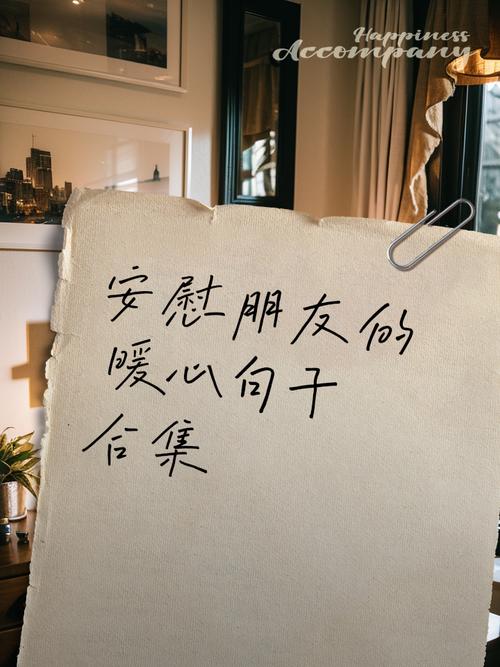 Happiness
Accompany
安慰朋友的
暖心句子
合集